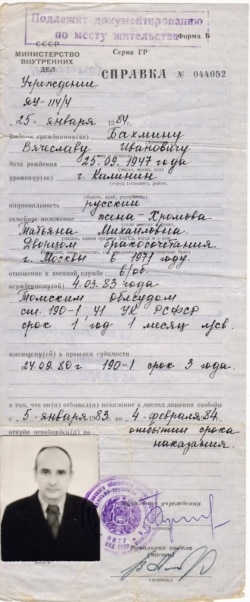 Подлежит документированию
по месту жительства
Форма Б
СССР
МИНИСТЕРСТВО
ВНУТРЕННИХ
ДЕЛ
Серия ГР
СПРАВКА № 044052
Учреждение
ЯУ-114/4
25 января 1984.
Выдана гражданину(ке) Бахмину
Вячеславу Ивановичу
дата рождения 25.09.1947 года
уроженцу(ке) г. Калинин
национальность русский
семейное положение жена-Хромова
Татьяна Михайловна
Дворцом бракосочетания
г. Москвы в 1971 году.
отношение к военной службе в/об.
осужденному(ой) 4.03.83 года
Томским облсудом
ст. 190-1 ч1 УК РСФСР
срок 1 год 1 месяц л/св.
имеющему(ей) в прошлом судимости
24.09.80 г 190-1 срок 3 года.
в том, что он(а) отбывал(а) наказание в местах лишения свободы
с 5 января 83 по 4 февраля 84.
откуда освобожден(а) по отбытии срока
наказания.
учреждения
Начальник отдела
(части)